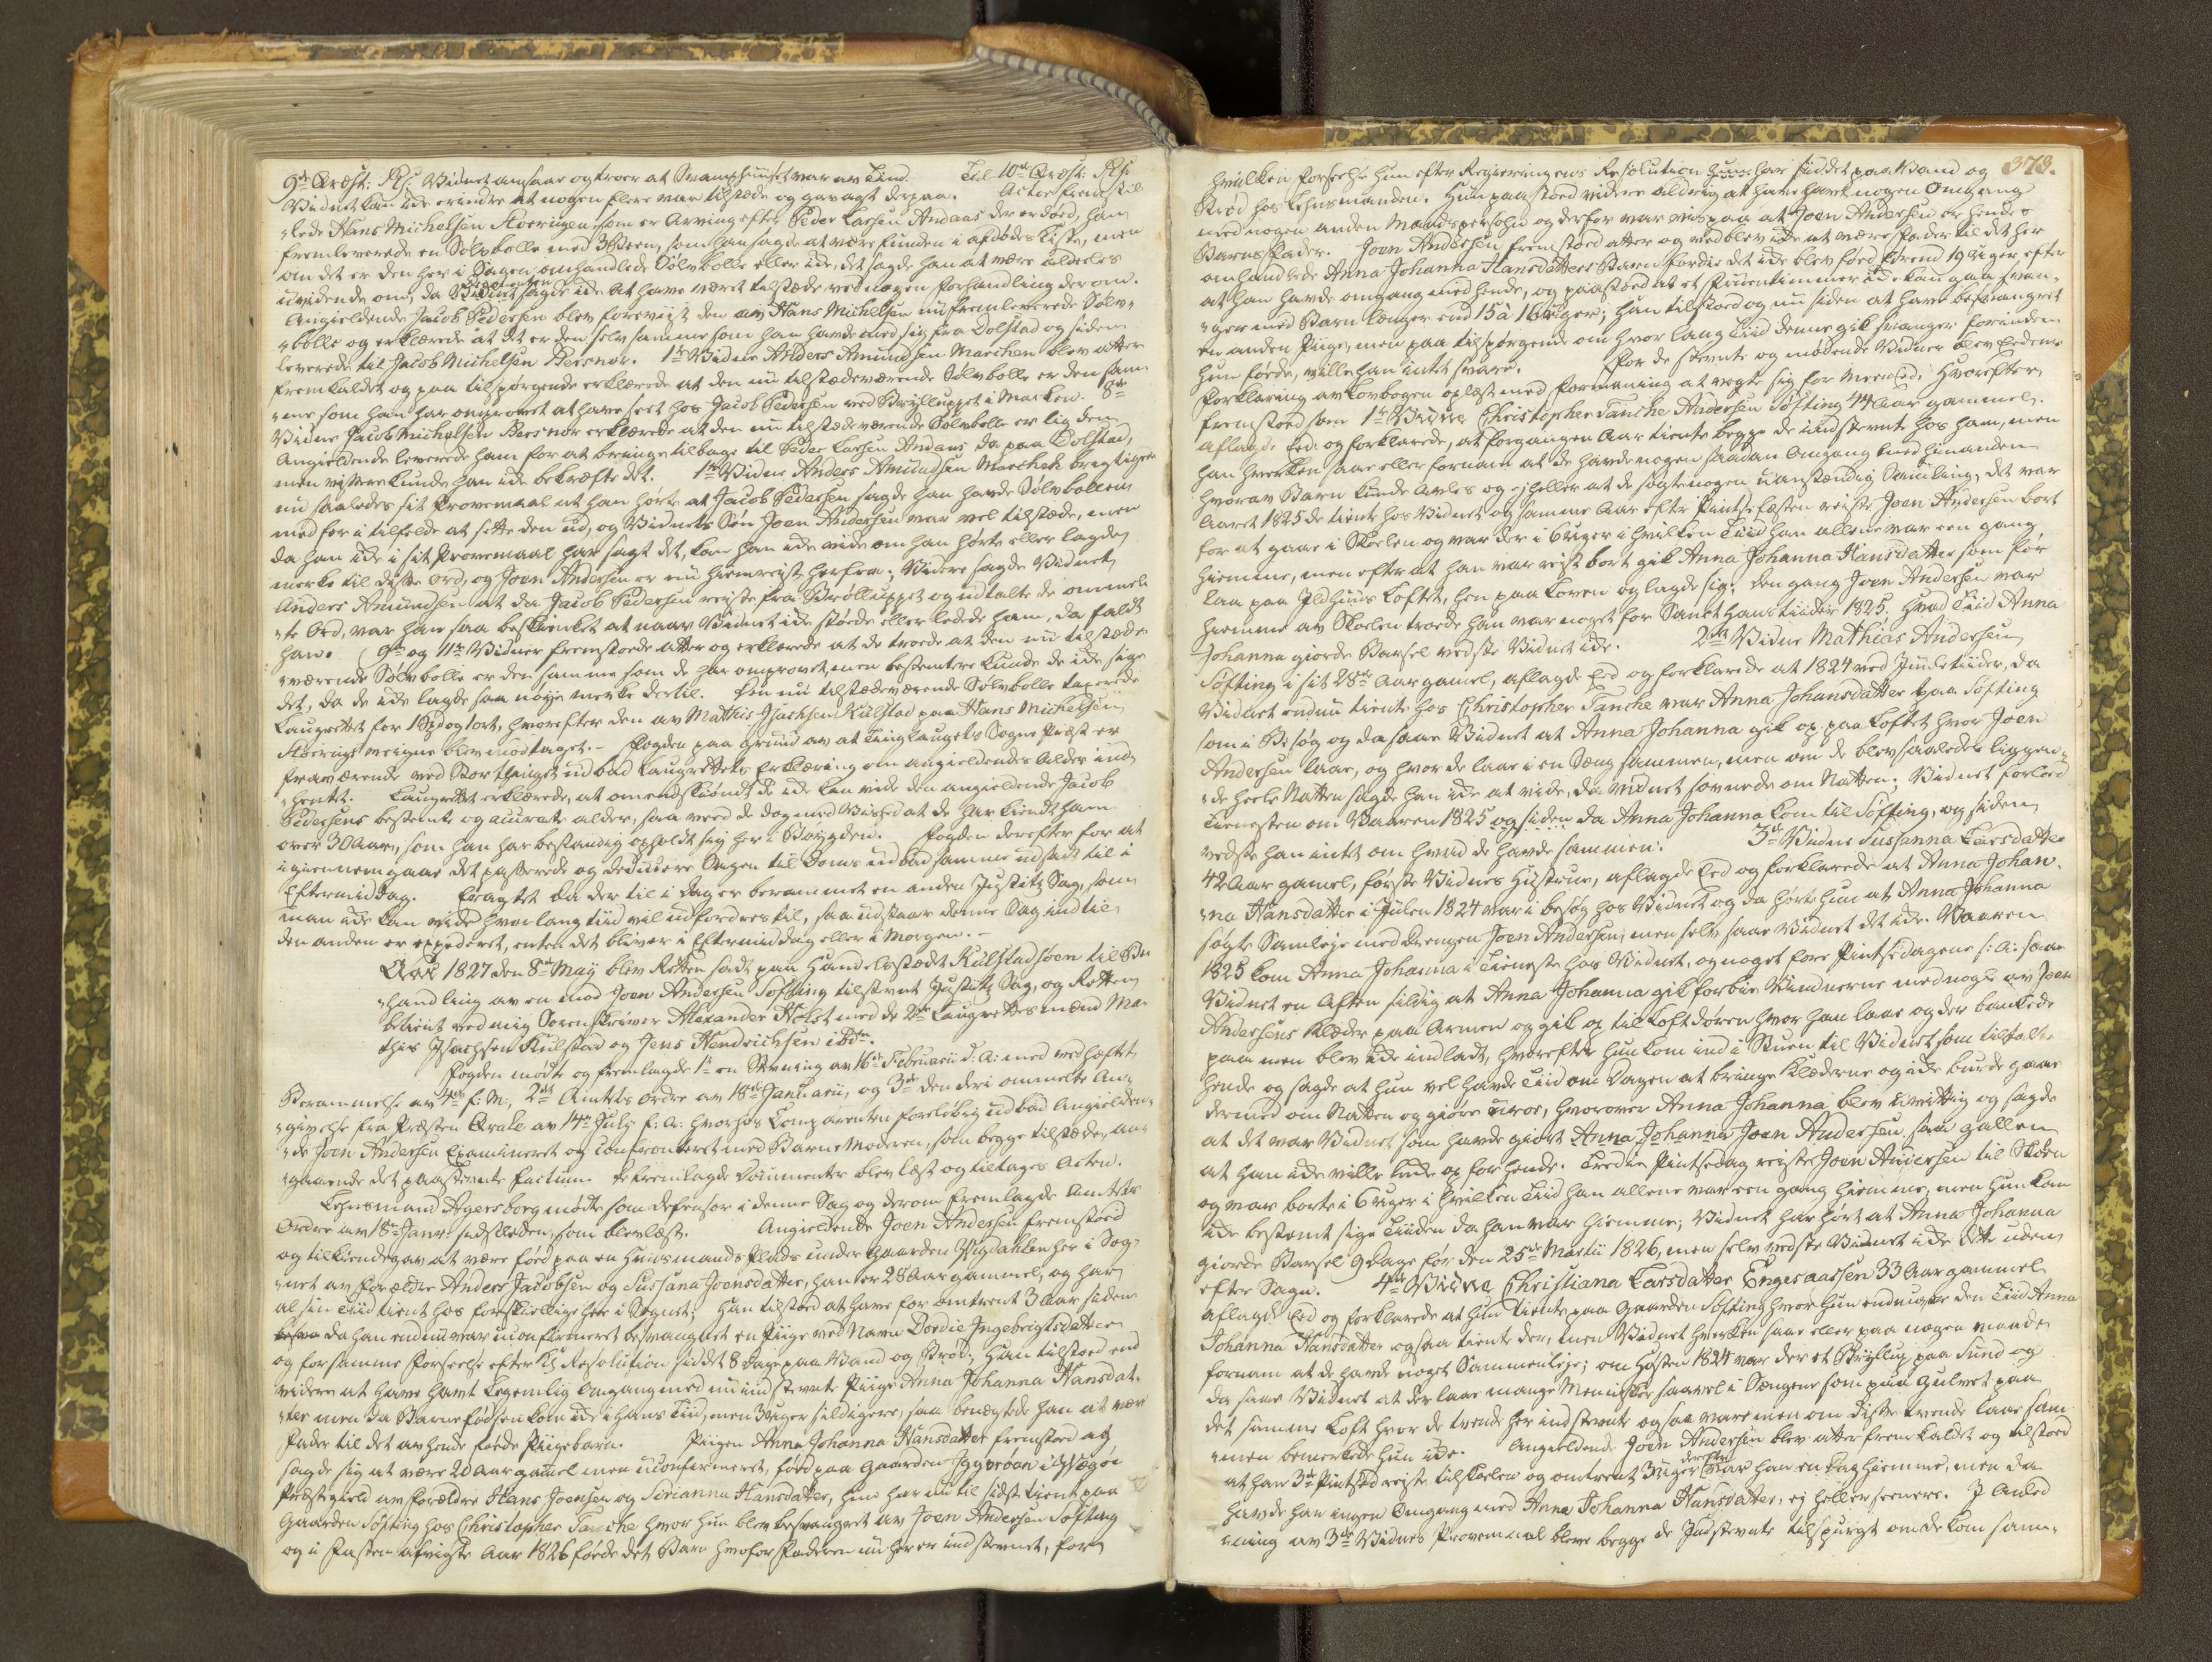 9de Qvæst: Rs: Vidnet ansaae og troer at Svamphuuset var av Tin. Til 10de Qvæst: Rs:
Vidnet kan ikke erindre at nogen flere var tilstede og gav agt derpaa. Actor fremstil
lede Hans Michelsen Storeigen som er Arving efter Peder Larsen Andaas der er død, han
fremleverede en Sølvbolle med 3 Been, som han sagde at være funden i afdødes Kiste, men
om det er den her i Sagen omhandlede Sølvbolle eller ikke, det sagde han at være aldeeles
uvidende om, da Vidnet sagde ikke at have været tilstæde ved nogen forhandling derom.
Angieldende Jacob Pedersen blev foreviist den av Hans Michelsen nu fremleverede Sølv
bolle og erklærede at det er den selv samme som han havde med sig fra Dolstad og siden
leverede til Jacob Michelsen Bersnor. 1te Vidne Anders Amundsen Marchen blev atter
fremkaldet og paa tilspørgende erklærede at den nu tilstædeværende Sølvbolle er den sam
me som han har omprovet at have seet hos Jacob Pedersen ved Brylluppet i Marken. 8de
Vidne Jacob Michelsen Bersnor erklærede at den nu tilstædeværende Sølvbolle er lig den
Angieldende leverede ham for at bringe tilbage til Peder Larsen Andaas da paa Dolstad,
men vissere kunde han ikke bekræfte det. 1te Vidne Anders Amundsen Marchen berigtigede
nu saaledes sit Provemaal at han hørte at Jacob Pedersen sagde han havde Sølvbollen
med for i tilfelde at sette den ud, og Vidnets Søn Joen Andersen var vel tilstæde, men
da han ikke i sit Provemaal har sagt det, kan han ikke vide om han hørte eller lagde
merke til disse Ord, og Joen Andersen er nu hiemreist herfra; Videre sagde Vidnet
Anders Amundsen at da Jacob Pedersen reiste fra Brølluppet og udtalte de ommel
te Ord, var han saa beskienket at naar Vidnet ikke støede eller ledede ham, da faldt
han. 9de og 11te Vidner fremstoede atter og erklærede at de troede at den nu tilstæde
værende Sølvbolle er den samme som de har omprovet, men bestemtere kunde de ikke sige
det, da de ikke lagde saa nøye merke dertil. Den nu tilstædeværende Sølvbolle taxerede
Laugrettet for 1 Spd og 1 ort, hvorefter den av Mathis Isachsen Kulstad paa Hans Michelsen
Storeigs veigne blev modtaget. - Fogden paa grund av at Tinglaugets Sogne Præst er
fraværende ved Storthinget udbad Laugrettets Erklæring om angieldendes Alder ind
hentet. Laugrettet erklærede, at omendskiøndt de ikke kan vide den angieldende Jacob
Pedersens bestemte og accurate alder, saa veed de dog med Vished at de har kiendt ham
over 30 Aar, som han har bestandig opholdt sig her i Bøigden. Fogden derefter for at
igiennemgaae det passerede og deducere Sagen til Doms udbad samme udsadt til i
Eftermiddag. Eragtet da der til i dag er berammet en anden Justitz Sag, som
man ikke kan vide hvor lang tiid vil udfordres til, saa udstaar denne Sag indtil
den anden er expederet, enten det bliver i Eftermiddag eller i Morgen. -
Aar 1827 den 8de May blev Retten sadt paa Handelsstædet Kulstadsøen til Be
handling av en mod Joen Andersen Søfting tilstevnt Justitz Sag, og Retten
betient ved mig Sorenskriver Alexander Holst med de 2de Laugrettesmænd Ma
this Isachsen Kulstad og Jens Hendrichsen ibdm.
Fogden mødte og fremlagde 1te en Stevning av 16de Februarii d: A: med vedhæftet
Berammelse av 4de f: M:, 2de Amtets Ordre av 18de Januarii, og 3de den deri ommelte An
givelse fra Præsten Qvale av 14de July f: A: hvorhos Comparenten foreløbig udbad Angielden
de Joen Andersen Examineret og Confronteret med Barne Moderen, som begge tilstæde, an
gaaende det paastevnte factum. De fremlagde Documenter blev læst og tiltages Acten.
Lehnsmand Agersborg mødte som Defensor i denne Sag og derom fremlagde Amtets
Ordre av 18de Janr: sidstleden, som blev læst. Angieldende Joen Andersen fremstoed
og tilkiendegav at være fød paa en Huusmands Plads under Gaarden Vigdahlen her i Sog
net av Forældre Anders Jacobsen og Sussana Joensdatter, han er 28 Aar gammel, og har
al sin Tiid tient hos forskiellige her i Sognet; Han tilstoed at have for omtrent 3 Aar siden
da han endnu var uconfirmeret besvangret en Piige ved Navn Dordie Ingebrigtsdatter
og for samme Forseelse efter Kl: Resolution siddet 8 Dage paa Vand og Brød; Han tilstoed end
videre at have havt Legemlig Omgang med nu indstevnte Piige Anna Johanna Hansdat
ter men da Barnefødsen kom ikke i hans Tiid, men 3 Uger sildigere, saa benegtede han at være
Fader til det av hende fødde Piigebarn. Piigen Anna Johanna Hansdatter fremstoed og
sagde sig at være 20 Aar gamel men uconfirmeret, fød paa Gaarden i Wegøe
Præstegield av Forældre Hans Joensen og Sirianna Hansdatter, hun har nu til sidst tient paa
Gaarden Søfting hos Christopher Tanche hvor hun blev besvangret av Joen Andersen Søfting
og i Fasten afvigte Aar 1826 fødde det Barn hvofor Faderen nu her er indstevnet, for
373.
hvilken forseelse hun efter Regieringens Resolution hun har siddet paa Vand og
Brød hos Lehnsmanden. Hun paastoed videre aldrig at have havt nogen Omgang
med nogen anden Mandsperson og derfor var vis paa at Joen Andersen er hendes
Barns Fader. Joen Andersen fremstoed atter og vedblev ikke at være Fader til det her
omhandlede Anna Johanna Hansdatters Barn fordie det ikke blev fød førend 19 Uger efter
at han havde omgang med hende, og paastoed at et Fruentimmer ikke kan gaa svan
ger med Barn længer end 15 à 16 Uger; han tilstoed og nu siden at have besvangret
en anden Piige, men paa tilspørgende om hvor lang Tiid denne gik svanger forinden
hun fødde, ville han intet svare. For de stevnte og mødende Vidner blev Eedens
Forklaring av Lovbogen oplæst med formaning at vogte sig for Meeneed, Hvorefter
fremstoed som 1te Vidne Christopher Tanche Andersen Søfting 44 Aar gammel.
aflagde Eed og forklarede, at forgangen Aar tiente begge de indstevnte hos ham, men
han hverken saae eller fornam at de havde nogen saadan Omgang med hinanden
hvorav Barn kunde avles og ej heller at de søgte nogen uanstændig Samling, det var
Aaret 1825 de tiente hos Vidnet og samme Aar efter Pintse Festen reiste Joen Andersen bort
for at gaae i Skolen og var der i 6 Uger i hvilken Tiid han allene var een gang
hiemme, men efter at han var reist bort gik Anna Johanna Hansdatter som før
laa paa Ildhuus Loftet, hen paa Loven og lagde sig. Den gang Joen Andersen var
hiemme av Skolen troede han var noget før Sancthanstiider 1825. Hvad Tiid Anna
Johanna giorde Barsel vidste Vidnet ikke. 2det Vidne Mathias Andersen
Søfting i sit 28de Aar gamel, aflagde Eed og forklarede at 1824 ved Juuletiider, da
Vidnet endnu tiente hos Christopher Tanche var Anna Johansdatter paa Søfting
som i Besøg og da saae Vidnet at Anna Johanna gik op paa Loftet hvor Joen
Andersen laae, og hvor de laae i en Seng sammen, men om de blev saaledes liggen
de heele Natten sagde han ikke at vide, da Vidnet sovnede om Natten; Vidnet forlod
Tienesten om Vaaren 1825 og siden da Anna Johanna kom til Søfting, og siden
vedste han intet om hvad de havde sammen. 3de Vidne Susanna Larsdatter
42 Aar gamel, første Vidnes Hustrue, aflagde Eed og forklarede at Anna Johan
na Hansdatter i Julen 1824 var i besøg hos Vidnet og da hørte hun at Anna Johanna
søgte Samleje med Drengen Joen Andersen, men selv saae Vidnet det ikke. Vaaren
1825 kom Anna Johanna i Tieneste hos Vidnet, og noget føre Pintsedagene s: A: saae
Vidnet en Aften sildig at Anna Johanna gik forbie Vinduerne med nogle av Joen
Andersens Klæder paa Armen og gik op til Loftdøren hvor han laae og der bankede
paa men blev ikke indladt, hvorefter hun kom ind i Stuen til Vidnet som tiltalte
hende og sagde at hun vel havde Tiid om Dagen at bringe Klæderne og ikke burde gaae
dermed om Natten og giøre uroe, hvorover Anna Johanna blev uvittig og sagde
at det var Vidnet som havde giort Anna Johanna Joen Andersen saa gallen
at han ikke ville lukke op for hende. Tredie Pintsedag reiste Joen Andersen til Skolen
og var borte i 6 Uger i hvilken Tiid han allene var een gang hiemme, men hun kan
ikke bestemt sige Tiiden da han var hiemme; Vidnet har hørt at Anna Johanna
giorde Barsel 9 Dage før den 25de Martii 1826, men selv vedste Vidnet ikke dette uden
efter Sagn. 4de Vidne Christiana Larsdatter Engesaasen 33 Aar gammel
aflagde Eed og forklarede at hun tiente paa Gaarden Søfting hvor hun endnu er den Tiid Anna
Johanna Hansdatter ogsaa tiente der, men Vidnet hverken saae eller paa nogen maade
fornam at de havde noget Sammenleje; om Høsten 1824 var der et Bryllup paa Sund og
da saae Vidnet at der laae mange Mennisker saavel i Sengene som paa Gulvet paa
det samme Loft hvor de tvende her indstevnte ogsaa vare men om disse tvende laae sam
men bemerkede hun ikke. Angieldende Joen Andersen blev atter fremkaldet og tilstoed
at han 3de Pintsed. reiste til Skolen og omtrent 3 Uger derefter var han en Dag hiemme, men da
havde han ingen Omgang med Anna Johanna Hansdatter, ej heller seenere. I Anled
ning av 3de Vidnes Provemaal bleve begge de Indstevnte tilspurgt om de kom sam